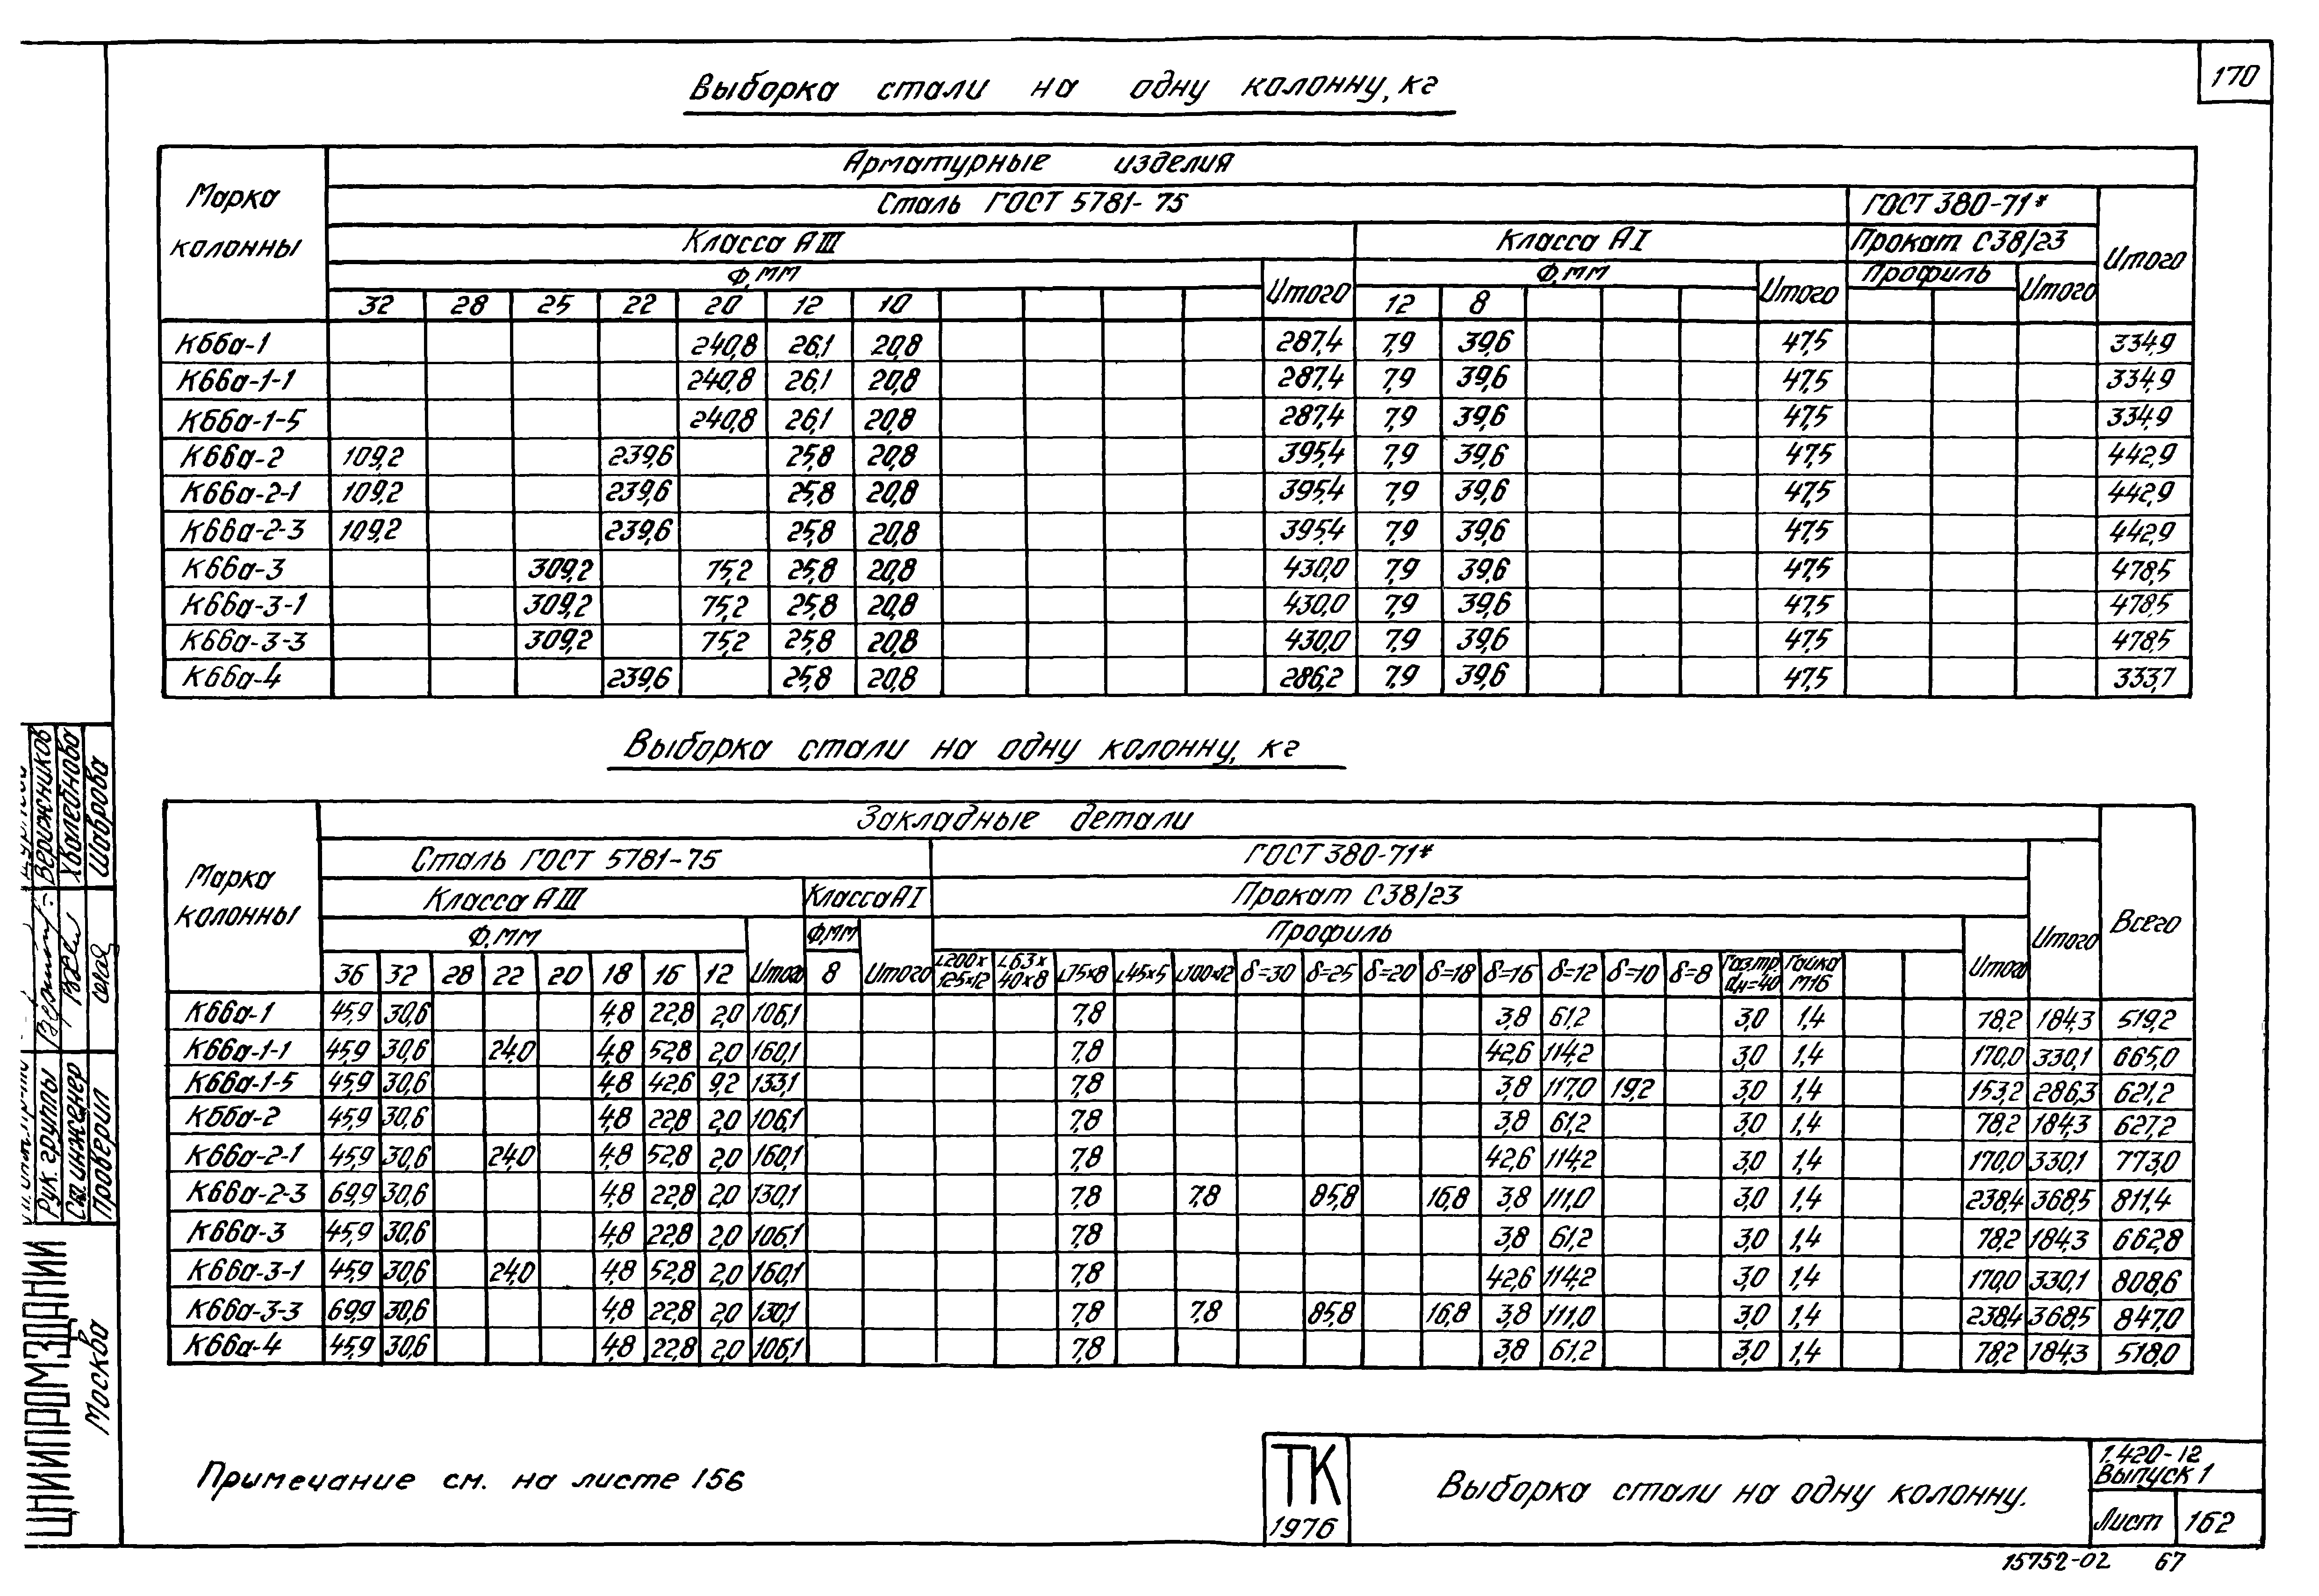 170
Выборка стали на одну колонну, кг
Марка колонны
Арматурные изделия
Сталь ГОСТ 5781-75 ГОСТ 380-71* Итого
Класса АIII Класса АI Прокат С38/23
Ф, мм Итого Ф, мм Итого Профиль Итого
32 28 25 22 20 12 10 12 8
К66а-1 240,8 26,1 20,8 287,4 7,9 39,6 47,5 334,9
К66а-1-1 240,8 26,1 20,8 287,4 7,9 39,6 47,5 334,9
К66а-1-5 240,8 26,1 20,8 287,4 7,9 39,6 47,5 334,9
К66а-2 109,2 239,6 25,8 20,8 395,4 7,9 39,6 47,5 442,9
К66а-2-1 109,2 239,6 25,8 20,8 395,4 7,9 39,6 47,5 442,9
К66а-2-3 109,2 239,6 25,8 20,8 395,4 7,9 39,6 47,5 442,9
К66а-3 309,2 75,2 25,8 20,8 430,0 7,9 39,6 47,5 478,5
К66а-3-1 309,2 75,2 25,8 20,8 430,0 7,9 39,6 47,5 478,5
К66а-3-3 309,2 75,2 25,8 20,8 430,0 7,9 39,6 47,5 478,5
К66а-4 239,6 25,8 20,8 286,2 7,9 39,6 47,5 333,7
Выборка стали на одну колонну, кг
Марка колонны
Закладные детали Всего
Сталь ГОСТ 5781-75 ГОСТ 380-71* Итого
Класса АIII Класса АI Прокат С38/23
Ф, мм Итого Ф, мм Итого Профиль Итого
36 32 28 22 20 18 16 12 8 L200х125х12 L63х40х8 L75х8 L45х5 L100х12 δ=30 δ=25 δ=20 δ=18 δ=16 δ=12 δ=10 δ=8 Газ.тр. dн=40 Гайка М16
К66а-1 45,9 30,6 4,8 22,8 2,0 106,1 7,8 3,8 61,2 3,0 1,4 78,2 184,3 519,2
К66а-1-1 45,9 30,6 24,0 4,8 52,8 2,0 160,1 7,8 42,6 114,2 3,0 1,4 170,0 330,1 665,0
К66а-1-5 45,9 30,6 4,8 42,6 9,2 133,1 7,8 3,8 117,0 19,2 3,0 1,4 153,2 286,3 621,2
К66а-2 45,9 30,6 4,8 22,8 2,0 106,1 7,8 3,8 61,2 3,0 1,4 78,2 184,3 627,2
К66а-2-1 45,9 30,6 24,0 4,8 52,8 2,0 160,1 7,8 42,6 114,2 3,0 1,4 170,0 330,1 773,0
К66а-2-3 69,9 30,6 4,8 22,8 2,0 130,1 7,8 7,8 85,8 16,8 3,8 111,0 3,0 1,4 238,4 368,5 811,4
К66а-3 45,9 30,6 4,8 22,8 2,0 106,1 7,8 3,8 61,2 3,0 1,4 78,2 184,3 662,8
К66а-3-1 45,9 30,6 24,0 4,8 52,8 2,0 160,1 7,8 42,6 114,2 3,0 1,4 170,0 330,1 808,6
К66а-3-3 69,9 30,6 4,8 22,8 2,0 130,1 7,8 7,8 85,8 16,8 3,8 111,0 3,0 1,4 238,4 368,5 847,0
К66а-4 45,9 30,6 4,8 22,8 2,0 106,1 7,8 3,8 61,2 3,0 1,4 78,2 184,3 518,0
Примечание см. на листе 156
ТК
1976
Выборка стали на одну колонну.
1.420-12
Выпуск 1
Лист 162
15752-02 67
Рук. группы Верижников
Ст. инженер Хвалебнова
Проверил Шаврова
ЦНИИПРОМЗДАНИЙ
Москва